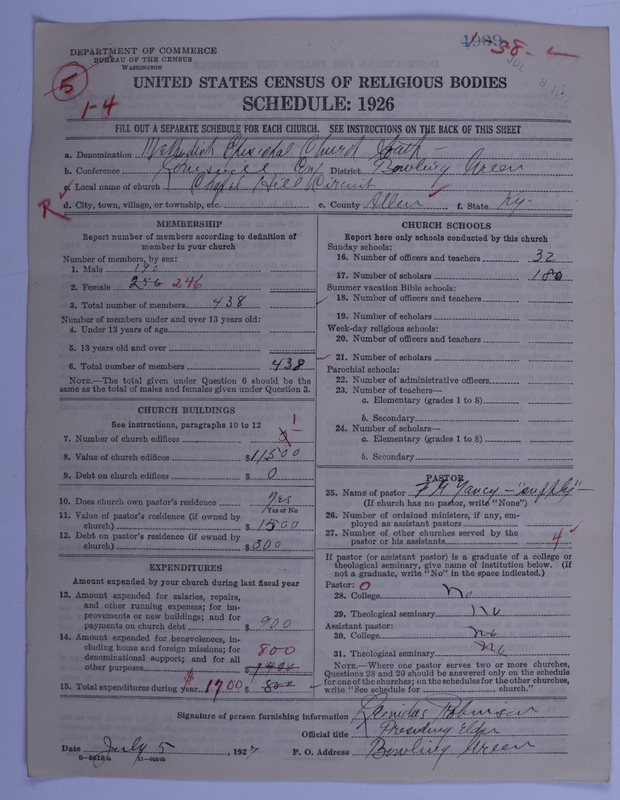 DEPARTMENT OF COMMERCE
BUREAU OF THE CENSUS
WASHINGTON
5
1-4
1-38-
UNITED STATES CENSUS OF RELIGIOUS BODIES
SCHEDULE: 1926
FILL OUT A SEPARATE SCHEDULE FOR EACH CHURCH. SEE INSTRUCTIONS ON THE BACK OF THIS SHEET
a. Denomination Methodist Episcopal Church South
b. Conference Louisville Conf District Bowling Green
c. Local name of church Chapel Hill Circuit
R
d. City, town, village, or township, etc. e. County Allen f. State Ky.
MEMBERSHIP
Report number of members according to definition of
member in your church
Number of members, by sex:
1. Male 192
2. Female 246
3. Total number of members 438
Number of members under and over 13 years old:
4. Under 13 years of age
5. 13 years old and over
6. Total number of members 438
NOTE.—The total given under Question 6 should be the
same as the total of males and females given under Question 3.
CHURCH BUILDINGS
See instructions, paragraphs 10 to 12
7. Number of church edifices 1
8. Value of church edifices $11500
9. Debt on church edifices $ 0
10. Does church own pastor's residence Yes
Yes or No
11. Value of pastor's residence (if owned by
church) $ 1500
12. Debt on pastor's residence (if owned by
church) $ 300
EXPENDITURES
Amount expended by your church during last fiscal year
13. Amount expended for salaries, repairs,
and other running expenses; for im-
provements or new buildings; and for
payments on church debt $ 900
14. Amount expended for benevolences, in-
cluding home and foreign missions; for
denominational support; and for all
other purposes $ 800
15. Total expenditures during year $1700 $ 800
CHURCH SCHOOLS
Report here only schools conducted by this church
Sunday schools:
16. Number of officers and teachers 32
17. Number of scholars 180
Summer vacation Bible schools:
18. Number of officers and teachers
19. Number of scholars
Week-day religious schools:
20. Number of officers and teachers
21. Number of scholars
Parochial schools:
22. Number of administrative officers
23. Number of teachers—
a. Elementary (grades 1 to 8)
b. Secondary
24. Number of scholars—
a. Elementary (grades 1 to 8)
b. Secondary
PASTOR
25. Name of pastor F M Yancy - "supply"
(If church has no pastor, write "None")
26. Number of ordained ministers, if any, em-
ployed as assistant pastors
27. Number of other churches served by the
pastor or his assistants 4
If pastor (or assistant pastor) is a graduate of a college or
theological seminary, give name of institution below. (If
not a graduate, write "No" in the space indicated.)
Pastor: 0
28. College No
29. Theological seminary No
Assistant pastor:
30. College No
31. Theological seminary No
NOTE.—Where one pastor serves two or more churches,
Questions 28 and 29 should be answered only on the schedule
for one of the churches; on the schedules for the other churches,
write "See schedule for church."
Signature of person furnishing information Leonidas Robinson
Official title Presiding Elder
Date July 5, 1927 P. O. Address Bowling Green